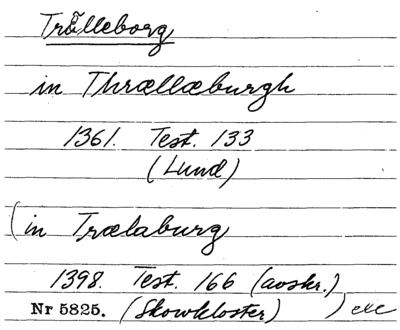 Trälleborg
in Thrællæburgh
1361. Test. 133
(Lund)
(in Trælaburg
1398. Test. 166 (avskr.)
Nr 5825. (Skowkloster) ) etc